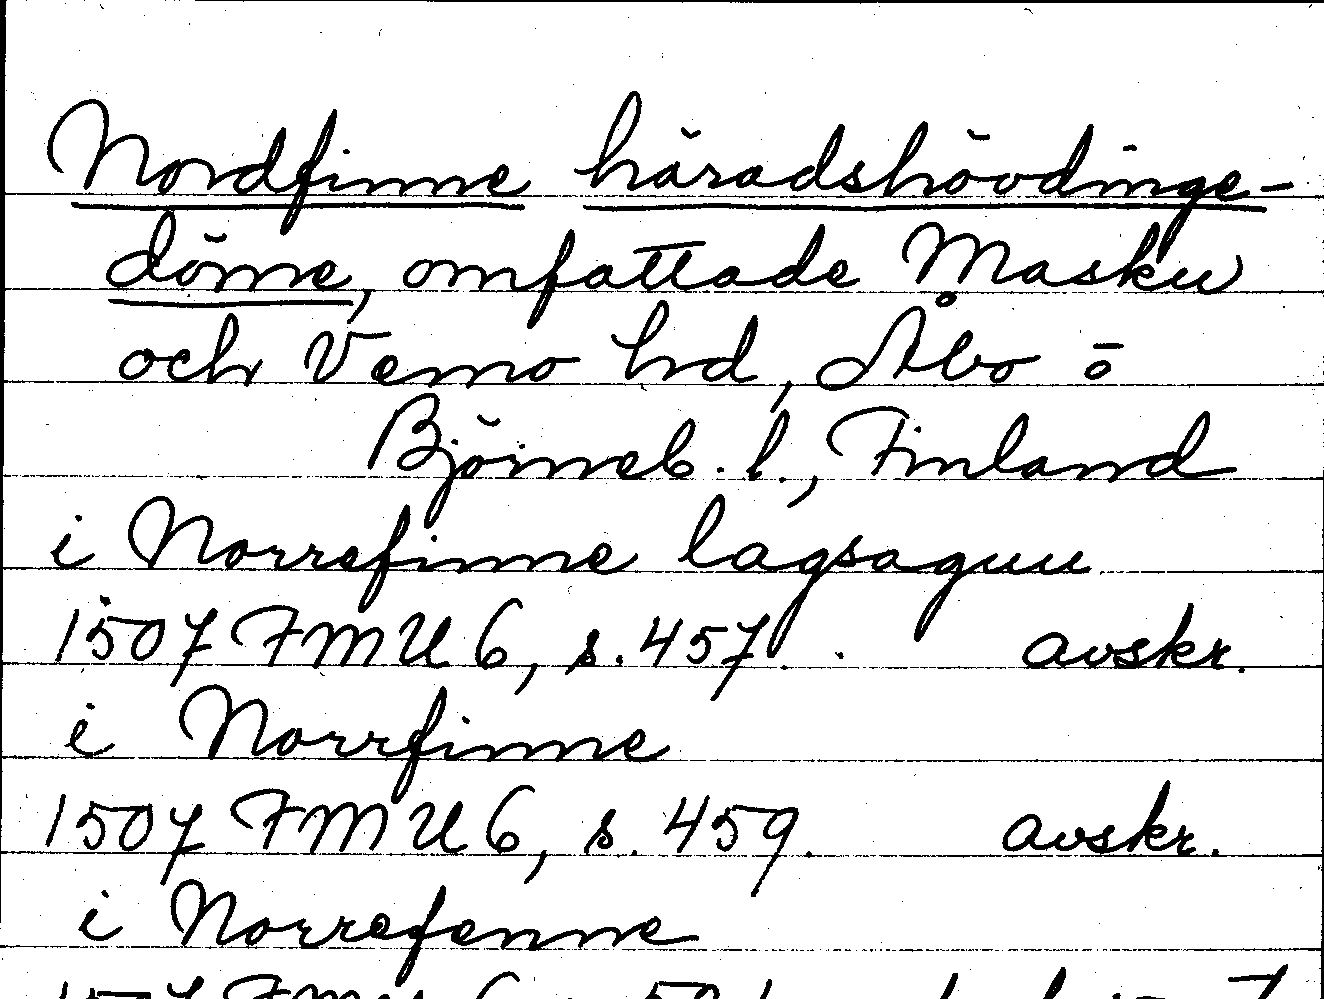 Nordfinne häradshövdinge-
döme, omfattade Masku
och Vemo hd, Åbo o
Björneb. l., Finland
i Norrefinne lagsaguu
1507 FMU 6, s. 457. avskr.
i Norrfinne
1507 FMU 6, s. 459. avskr.
i Norrefenne
1507 FMU 6